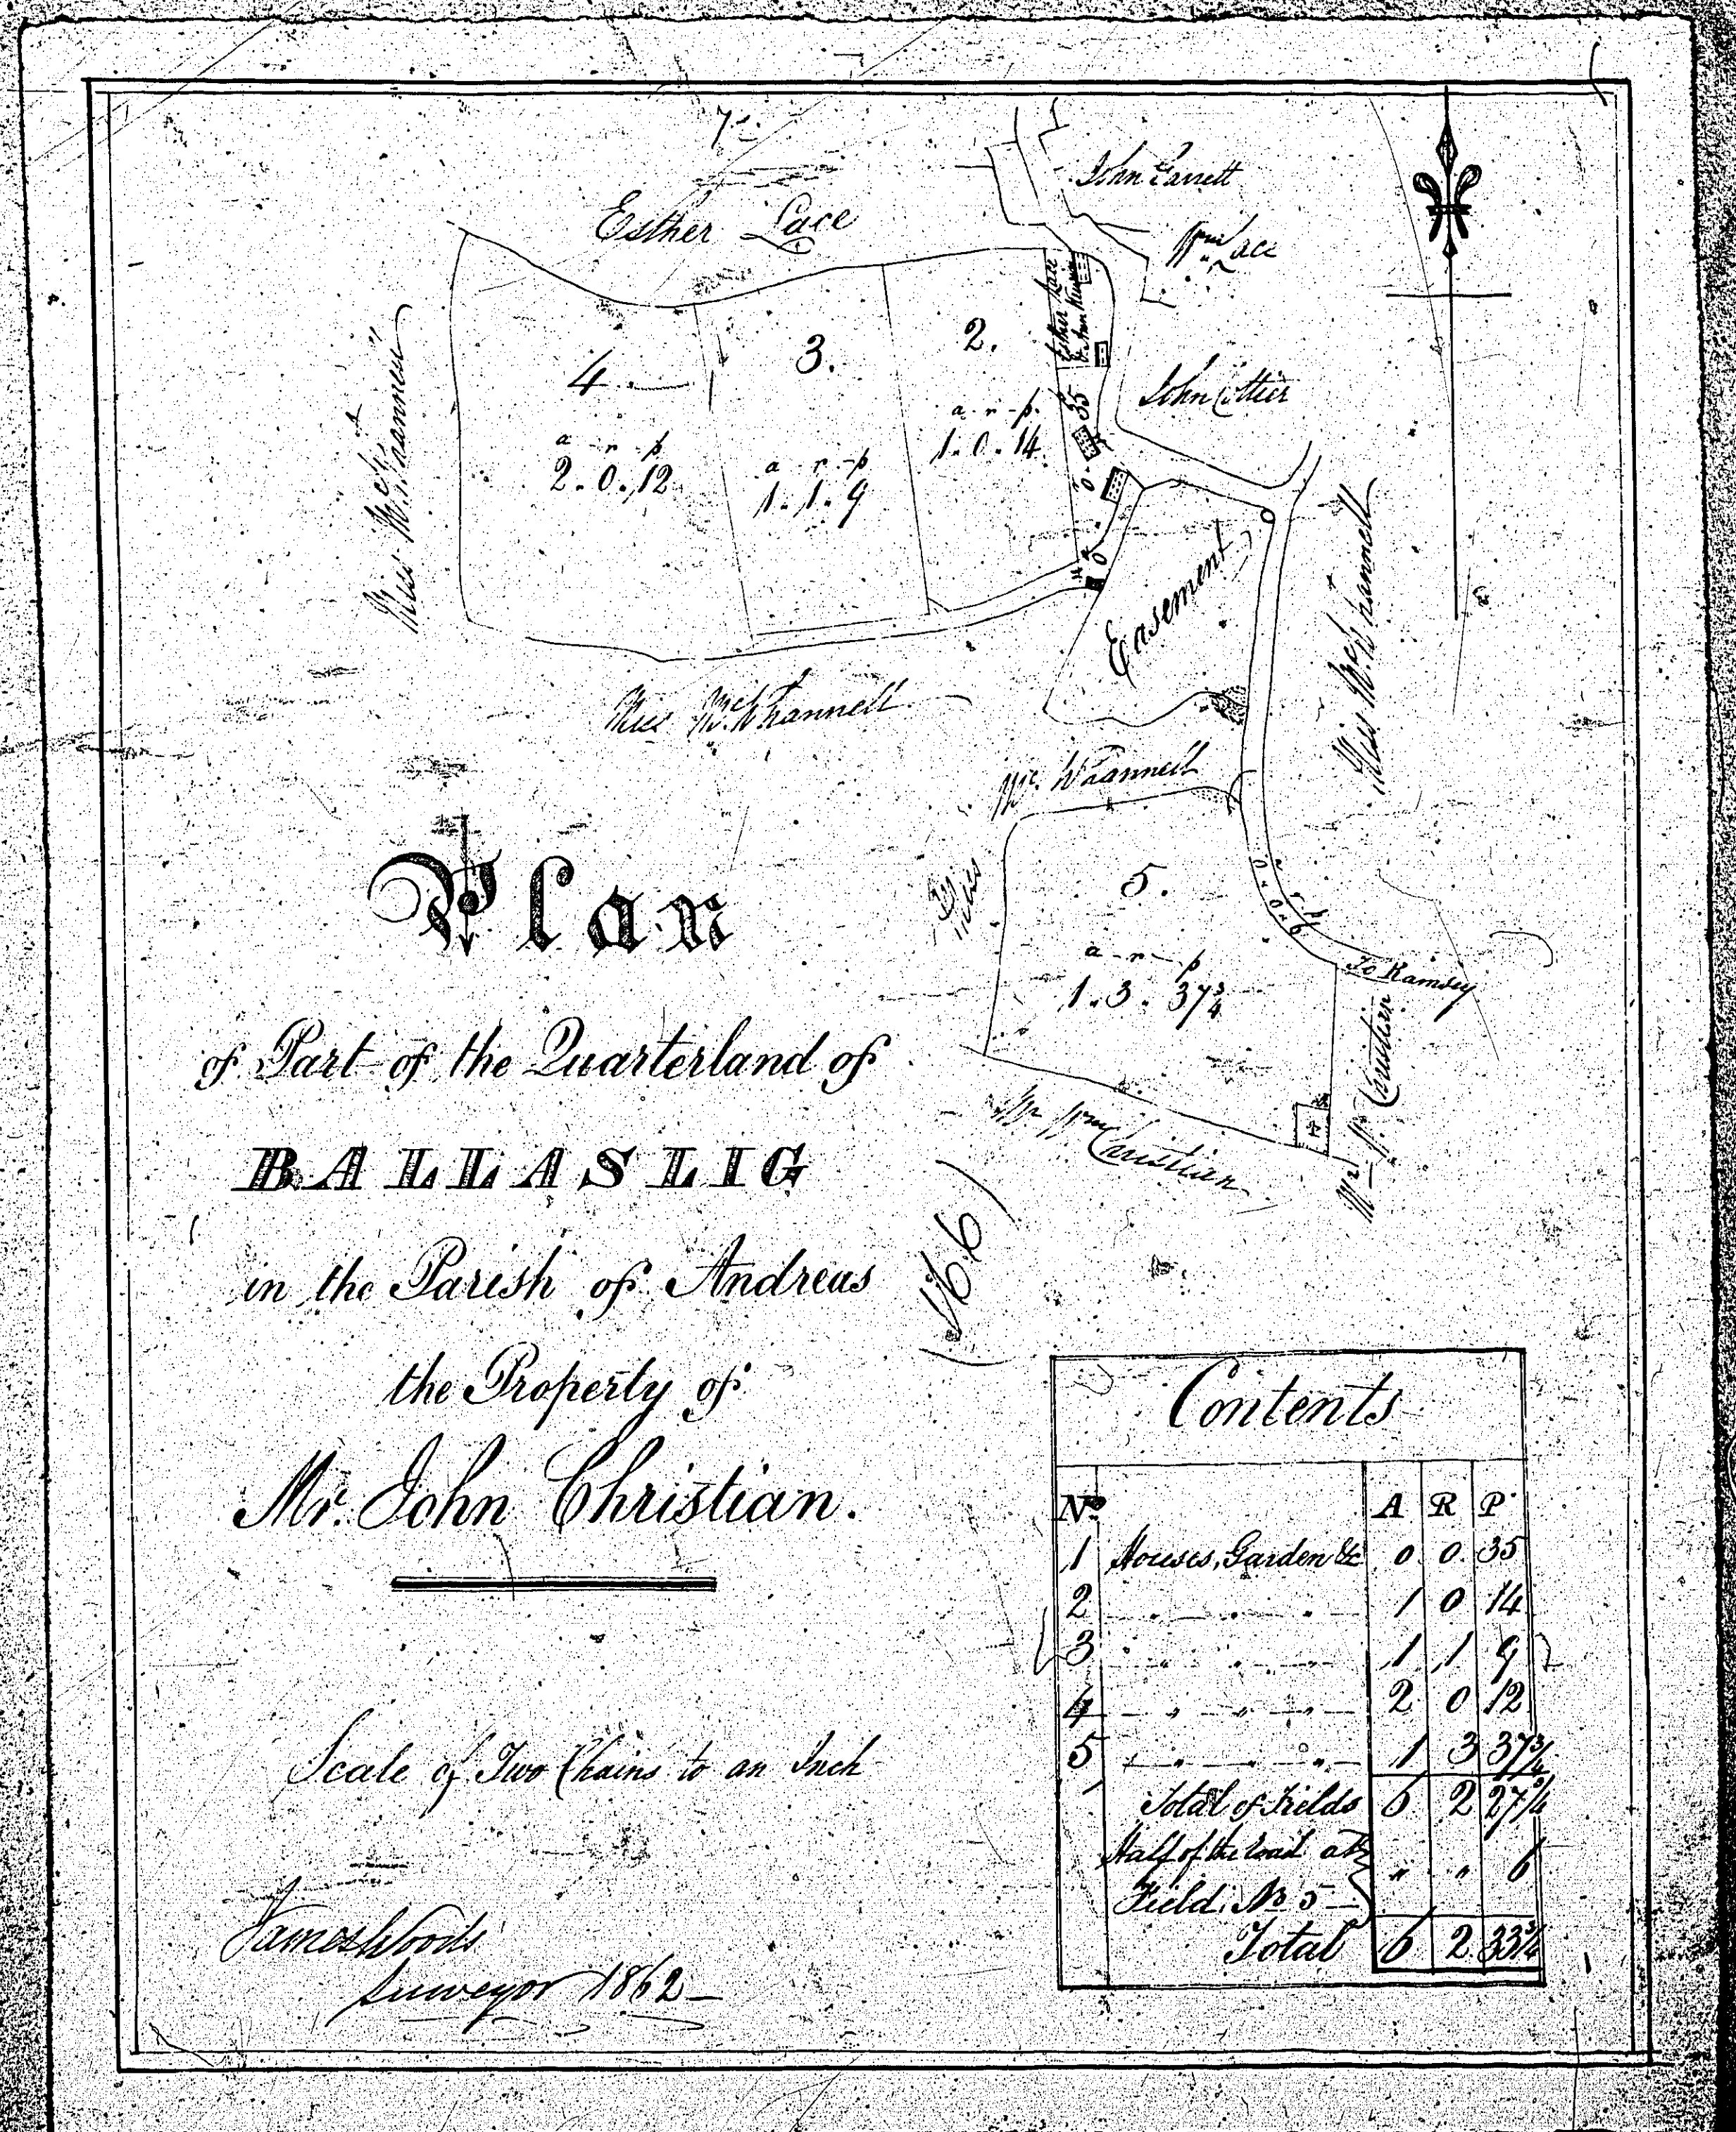 Esther Lace
John Garrett
Wm Lace
Esther Lace
& Ann
4.
3.
2.
a - r - p
2.0.12
a - r - p
1.1.9
a - r - p.
1.0.14
0.0.35
John Cottier
Miss McWhannell
Easement
Miss McWhannell
Miss McWhannell
Mc Whannell
Miss
5.
a - r - p
1.3.37¾
a r p
0 " 0 " 6
To Ramsey
Mr Wm Christian
Mr W. Christian
Plan
of Part of the Quarterland of
BALLASLIG
in the Parish of Andreas
the Property of
Mr. John Christian.
Scale of Two Chains to an Inch
James Woods
Surveyor 1862
Contents
No. A R P
1 Houses, Garden &c 0 0 35
2 " " " 1 0 14
3 " " " 1 1 9
4 " " " 2 0 12
5 " " " 1 3 37¾
Total of Fields 6 2 27¾
Half of the road at
Field No 5 " " 6
Total 6 2 33¾